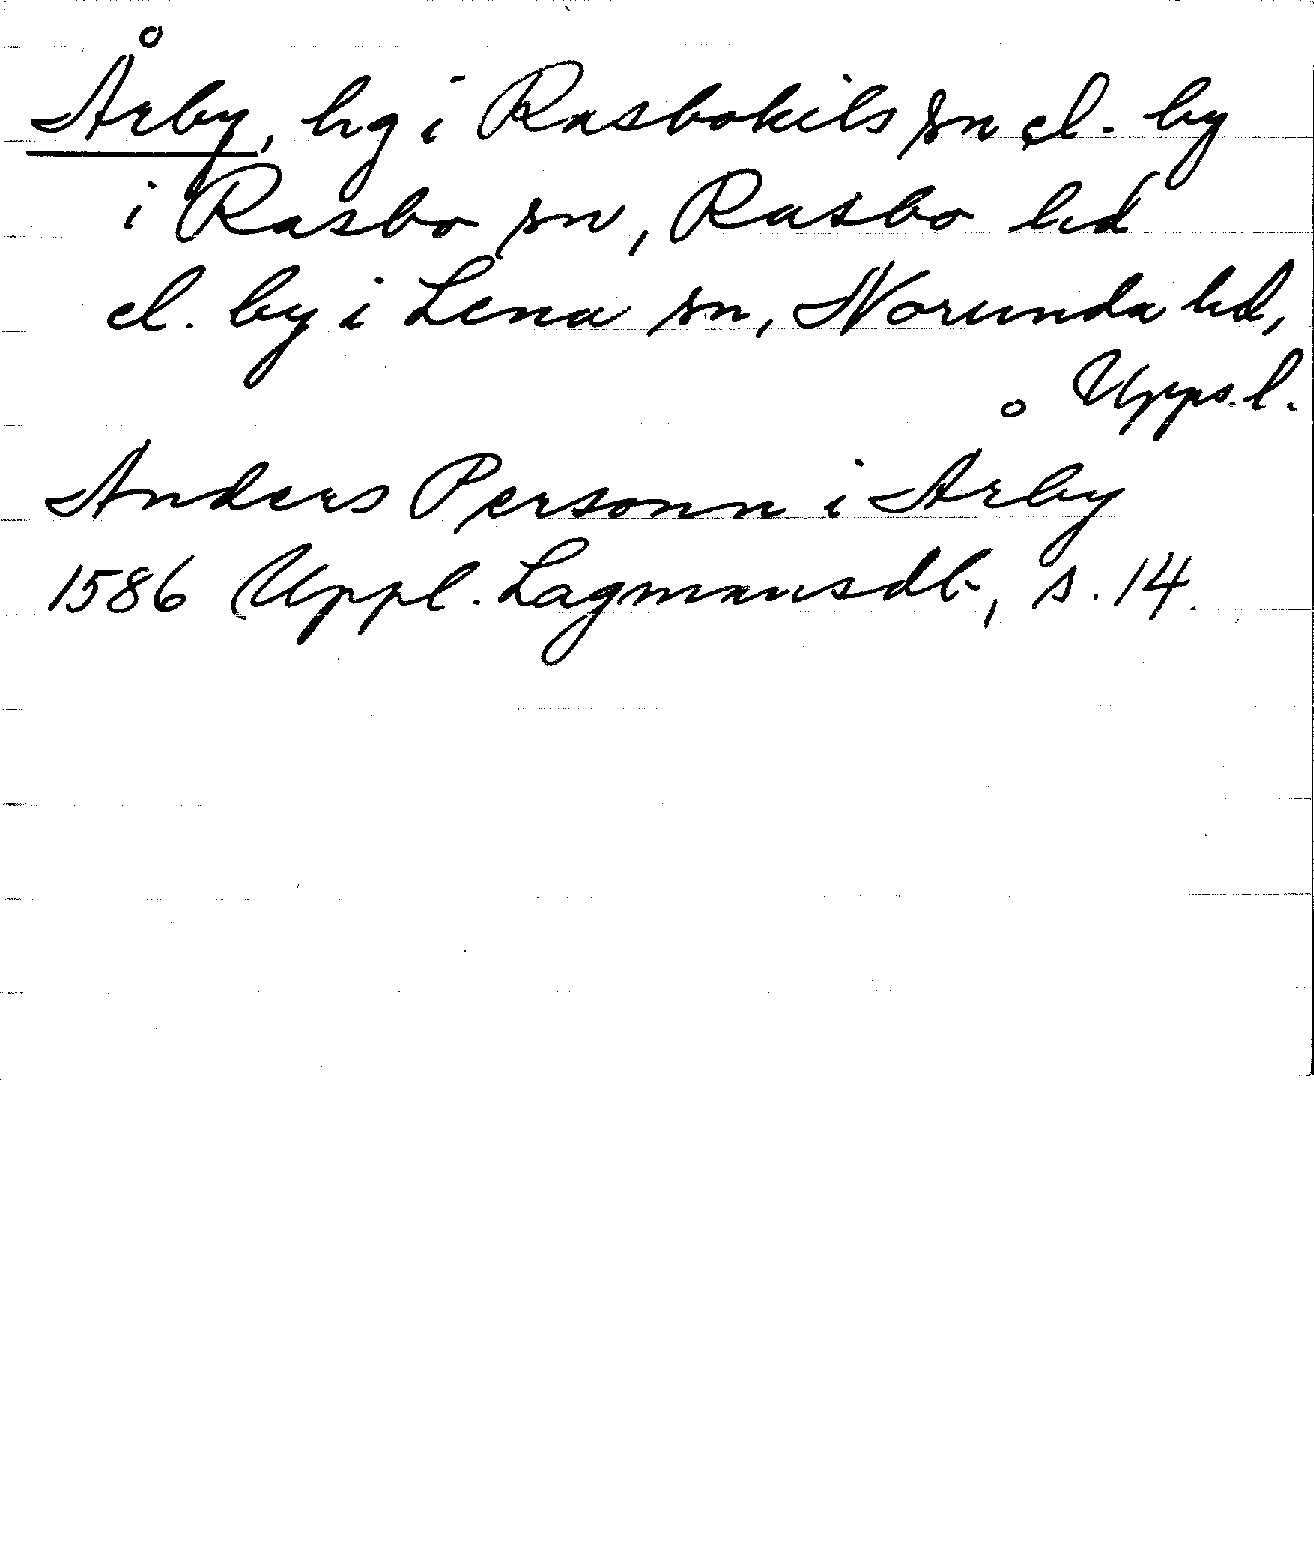 Årby, hg i Rasbokils sn el. by
i Rasbo sn, Rasbo hd
el. by i Lena sn, Norunda hd,
Upps.l.
Anders Personn i Årby
1586 Uppl. Lagmansdb, s. 14.